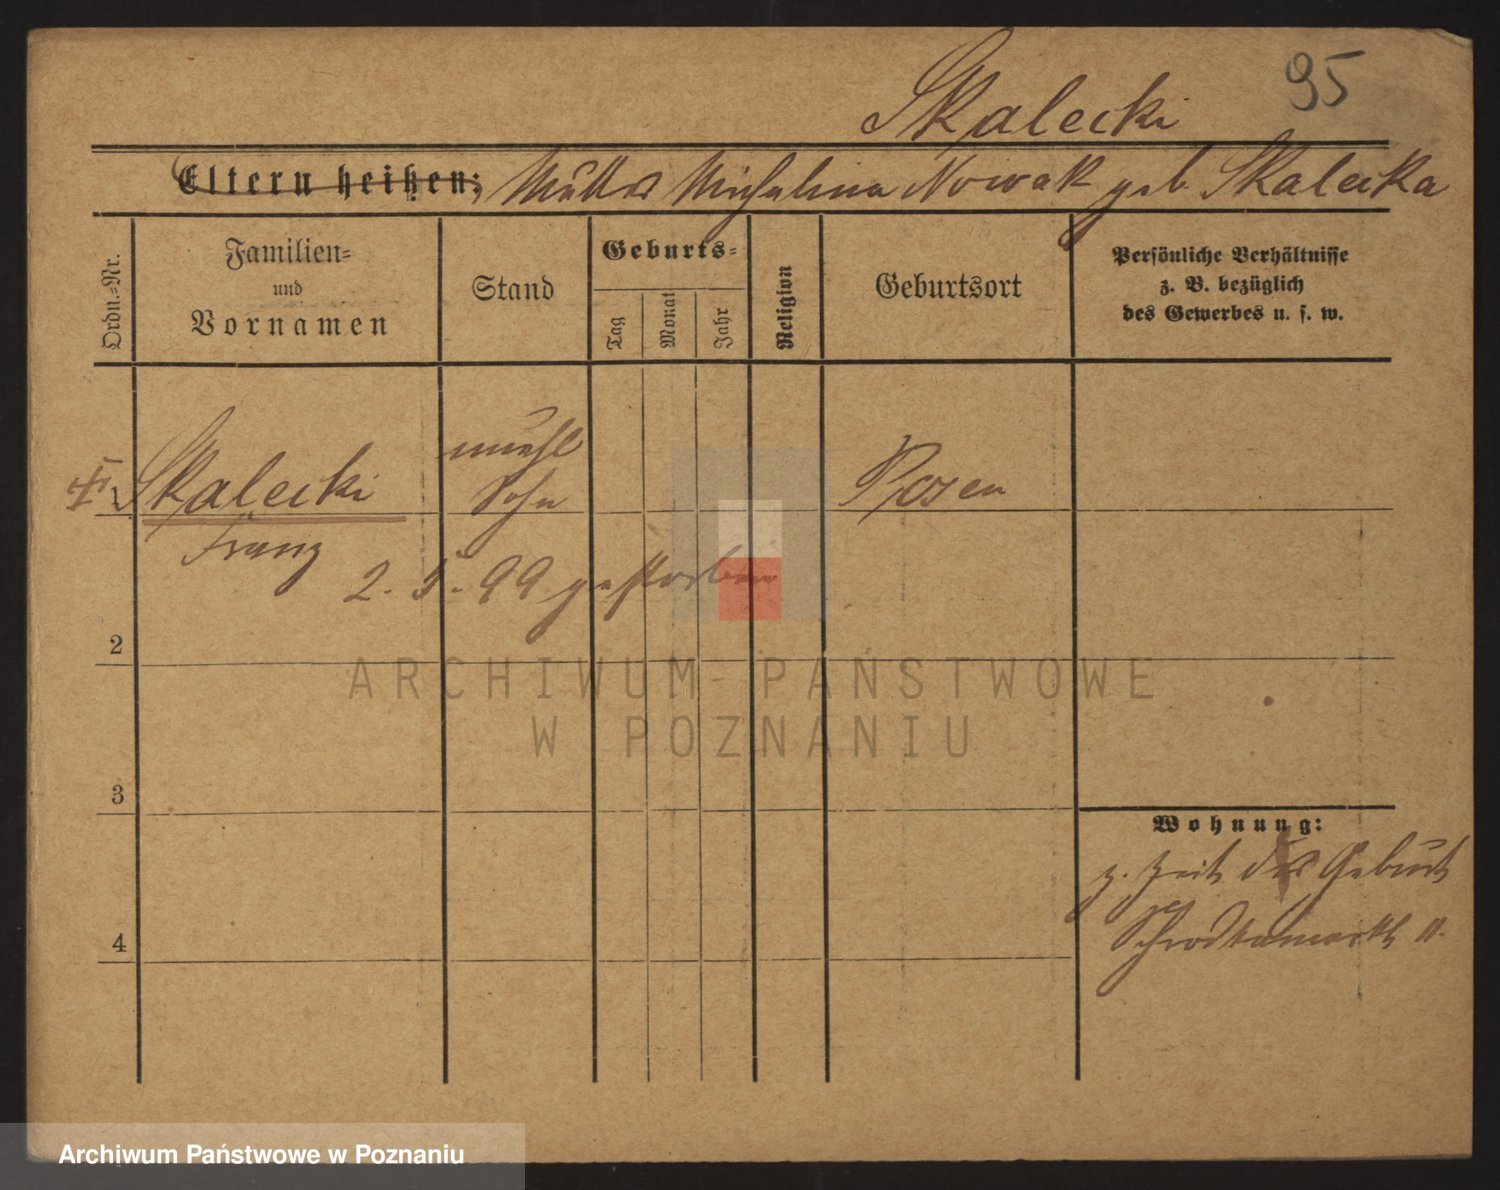 95
Skalecki
Eltern heißen: Mutter Michalina Nowak geb. Skalecka
Ordn.-Nr.
Familien-
und
Vornamen
Stand
Geburts-
Tag
Monat
Jahr
Religion
Geburtsort
Persönliche Verhältnisse
z. B. bezüglich
des Gewerbes u. s. w.
1
Skalecki
Franz
unehl
Sohn
Posen
2. 5. 99 gestorben
2
3
4
Wohnung:
z. Zeit der Geburt
Schrodkamarkt 11.
ARCHIWUM PAŃSTWOWE
W POZNANIU
Archiwum Państwowe w Poznaniu